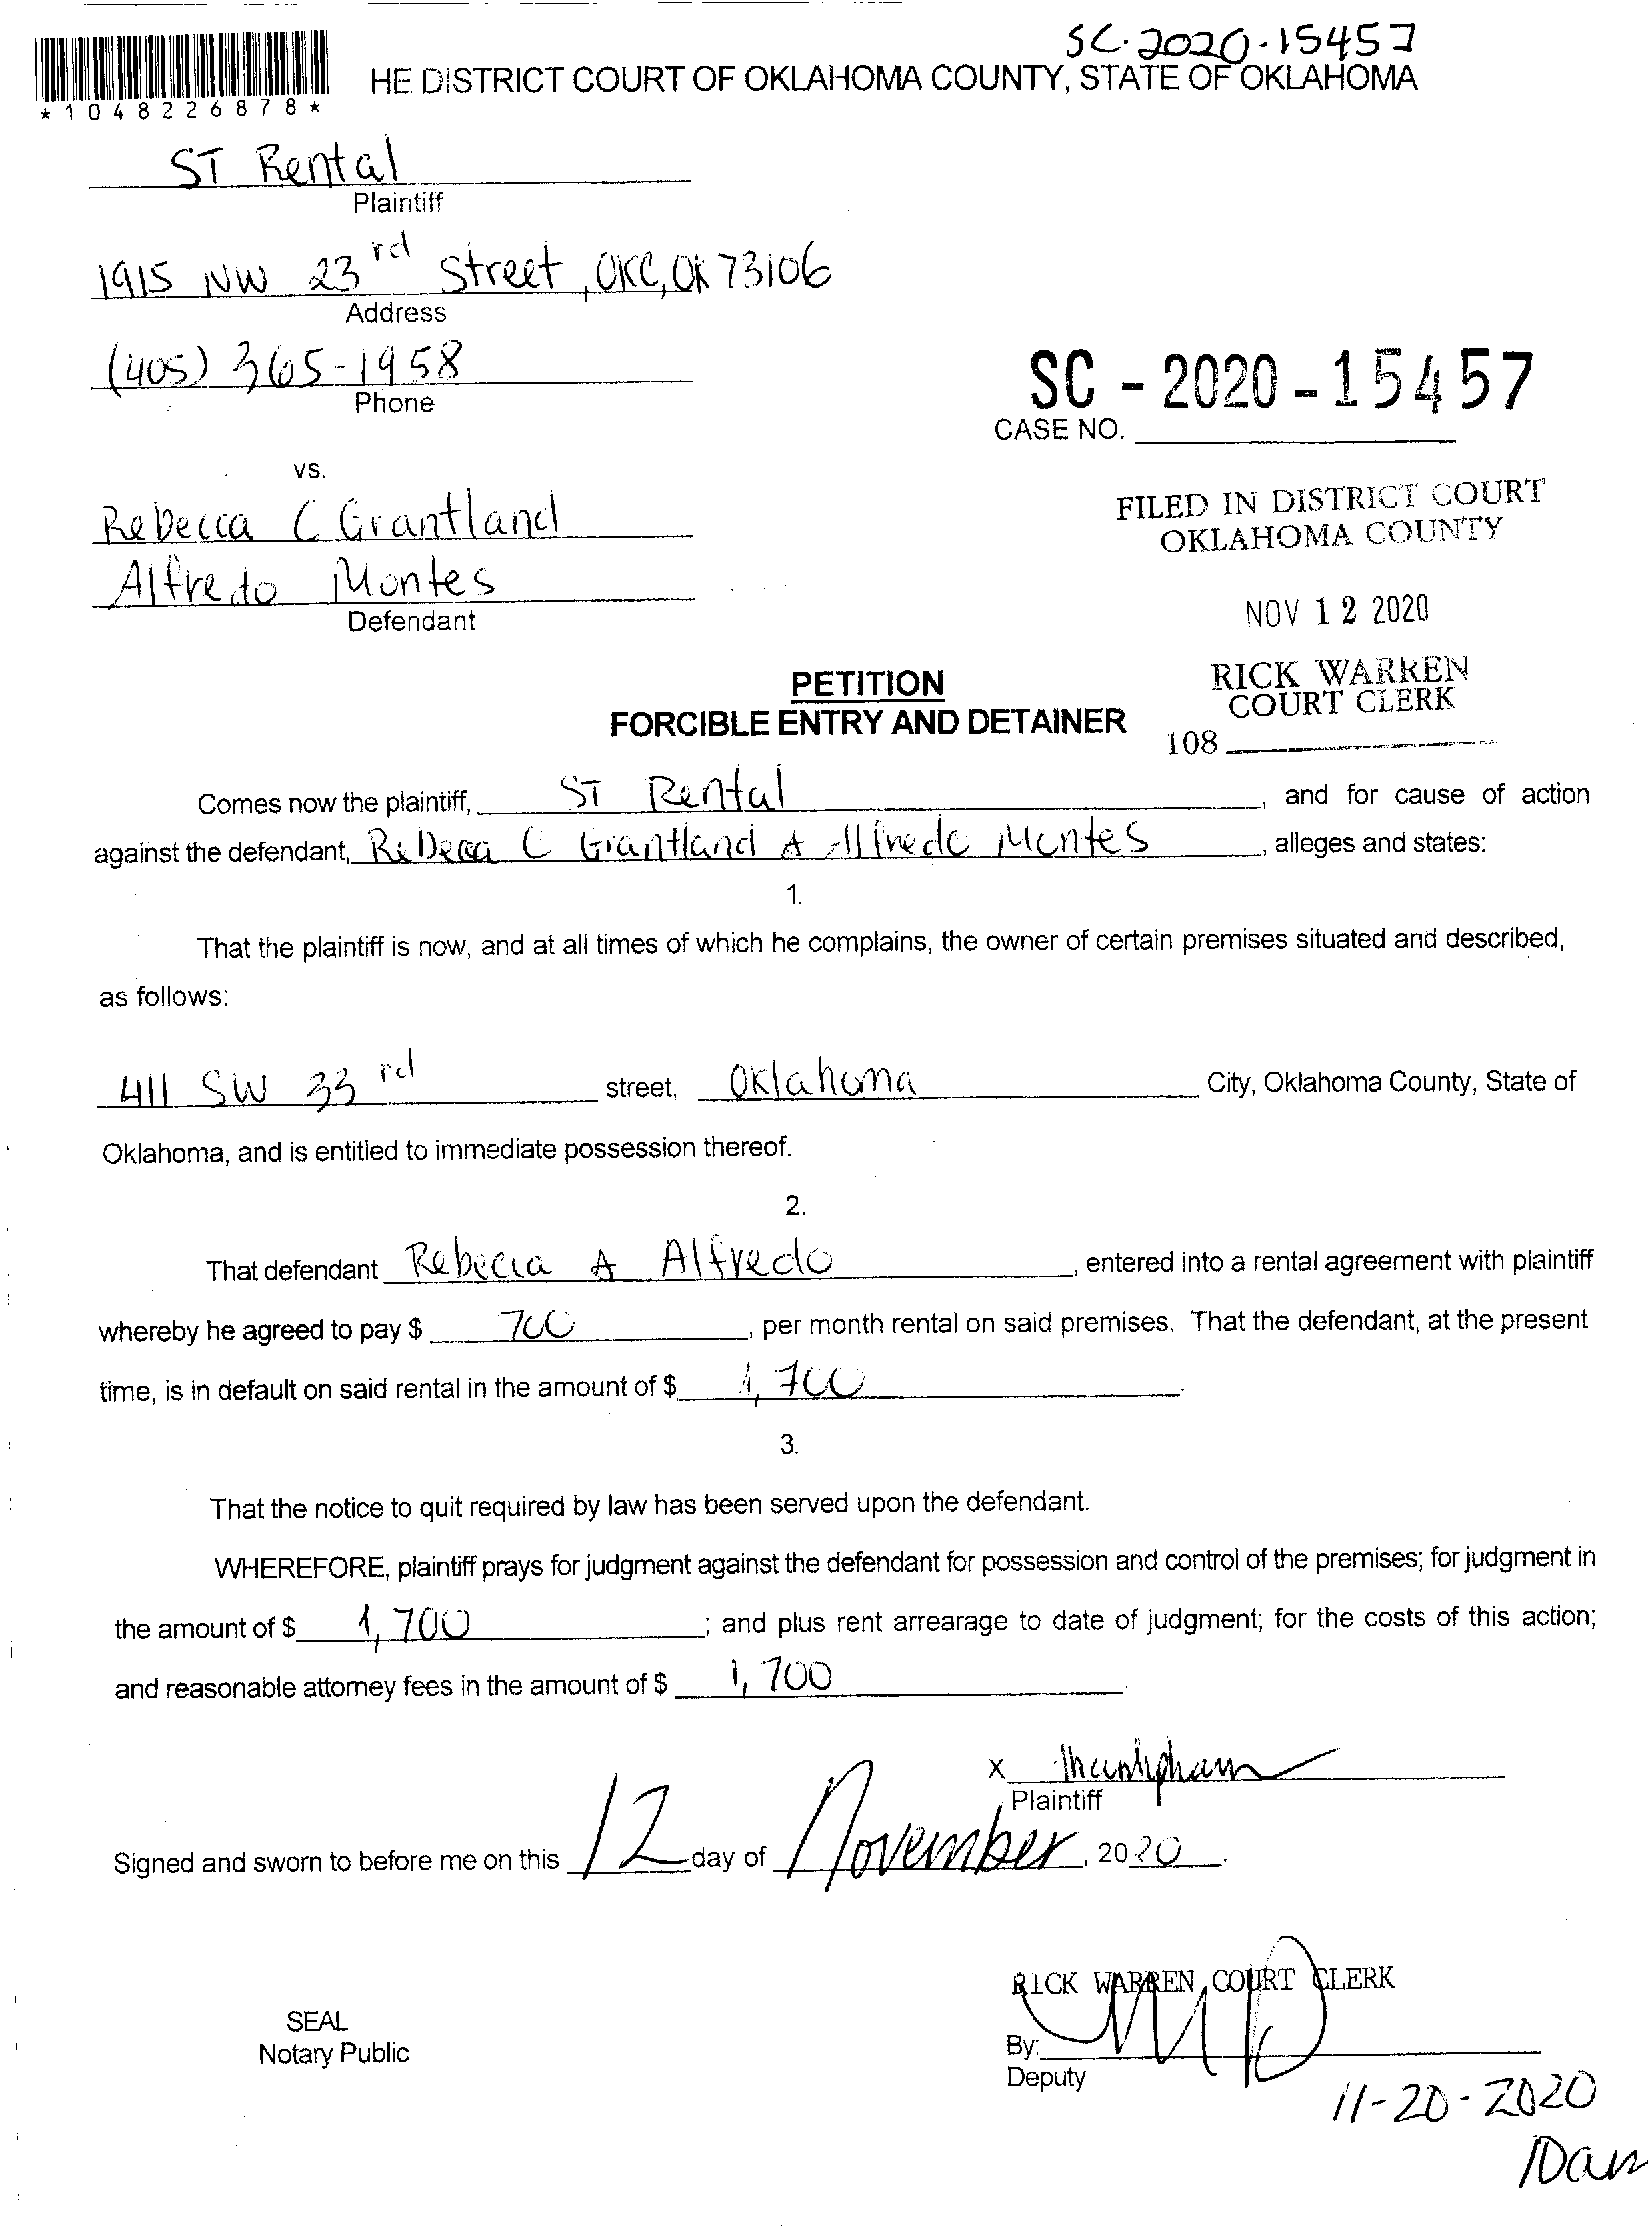 SC-2020-15457
HE DISTRICT COURT OF OKLAHOMA COUNTY, STATE OF OKLAHOMA
*1048226878*
ST Rental
Plaintiff
1915 NW 23rd Street, OKC, OK 73106
Address
(405) 365-1958
Phone
SC - 2020 - 15457
CASE NO.
vs.
Rebecca C Grantland
Alfredo Montes
Defendant
FILED IN DISTRICT COURT
OKLAHOMA COUNTY
NOV 12 2020
RICK WARREN
COURT CLERK
108
PETITION
FORCIBLE ENTRY AND DETAINER
Comes now the plaintiff, ST Rental, and for cause of action
against the defendant, Rebecca C Grantland & Alfredo Montes, alleges and states:
1.
That the plaintiff is now, and at all times of which he complains, the owner of certain premises situated and described,
as follows:
411 SW 33rd street, Oklahoma City, Oklahoma County, State of
Oklahoma, and is entitled to immediate possession thereof.
2.
That defendant Rebecca & Alfredo, entered into a rental agreement with plaintiff
whereby he agreed to pay $ 700, per month rental on said premises. That the defendant, at the present
time, is in default on said rental in the amount of $ 1,700.
3.
That the notice to quit required by law has been served upon the defendant.
WHEREFORE, plaintiff prays for judgment against the defendant for possession and control of the premises; for judgment in
the amount of $ 1,700; and plus rent arrearage to date of judgment; for the costs of this action;
and reasonable attorney fees in the amount of $ 1,700
x
Plaintiff
Signed and sworn to before me on this 12 day of November, 2020.
RICK WARREN, COURT CLERK
SEAL
Notary Public
By:
Deputy
11-20-2020